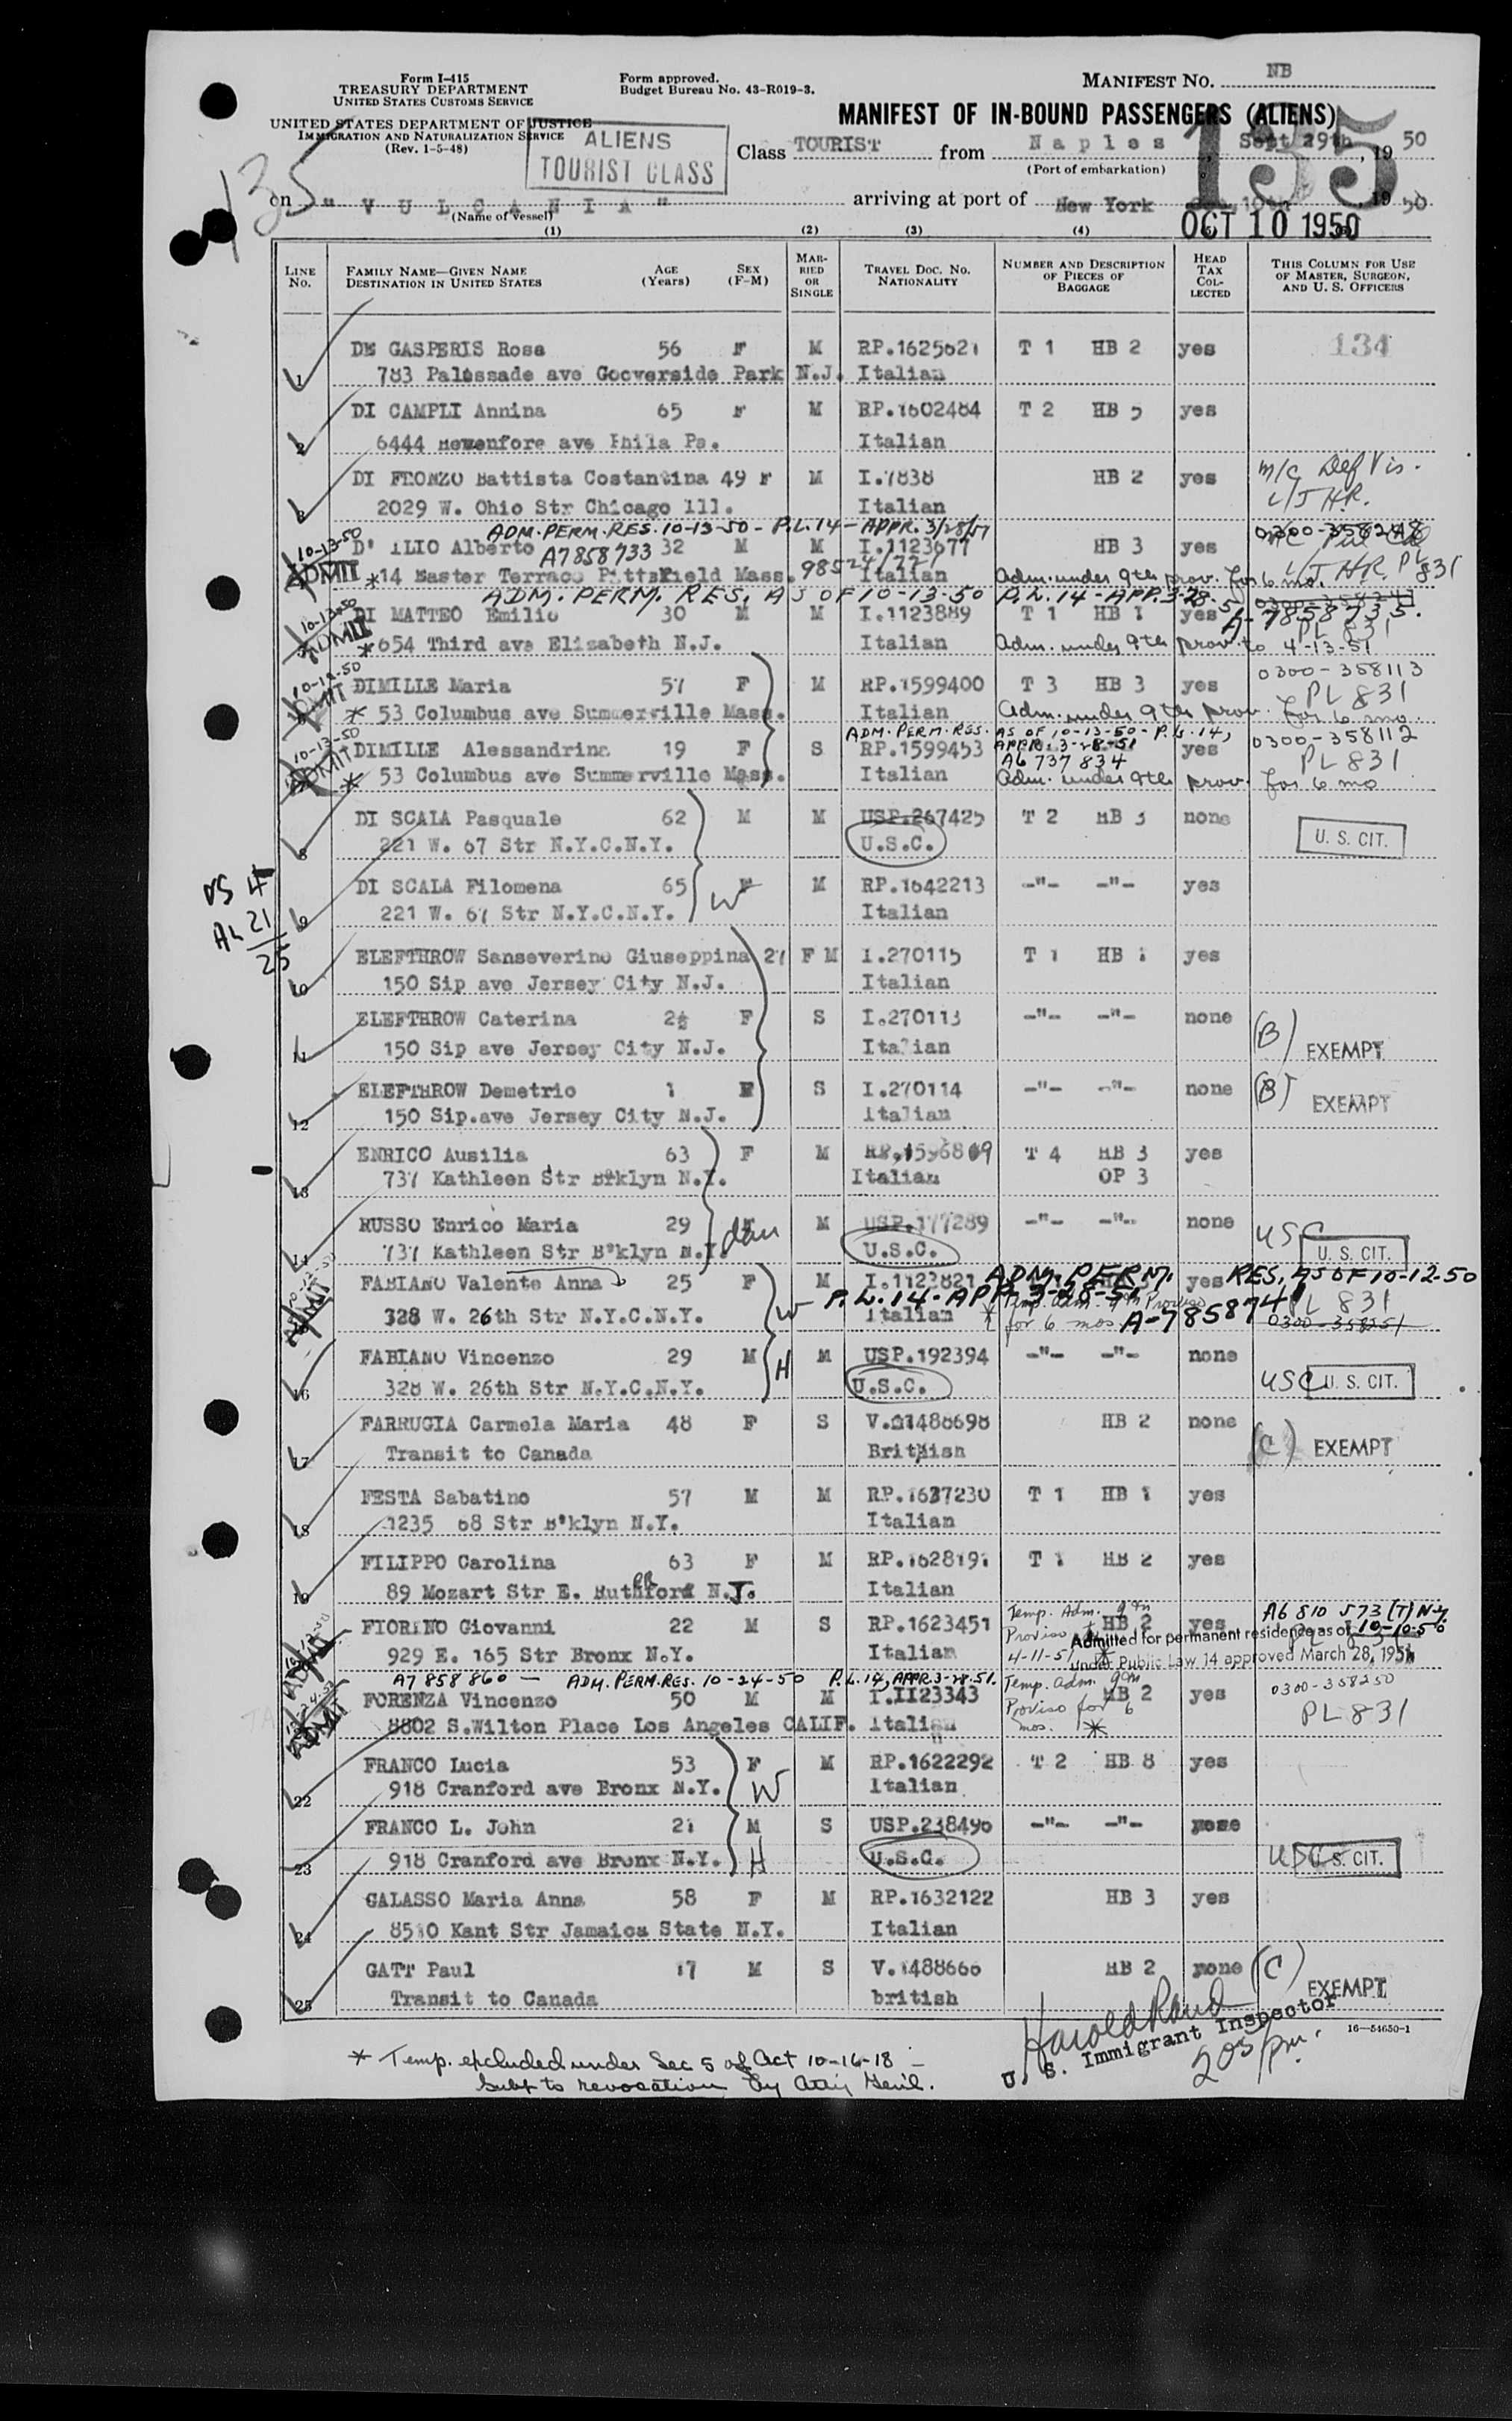 Form I-415
TREASURY DEPARTMENT
UNITED STATES CUSTOMS SERVICE
UNITED STATES DEPARTMENT OF JUSTICE
IMMIGRATION AND NATURALIZATION SERVICE
(Rev. 1-5-48)
Form approved.
Budget Bureau No. 43-R019-3.
MANIFEST NO. NB
MANIFEST OF IN-BOUND PASSENGERS (ALIENS)
135
135
ALIENS
TOURIST CLASS
Class TOURIST from Naples, Sept 29th, 19 50
(Port of embarkation)
on "VULCANIA" arriving at port of New York 19 50
(Name of vessel)
OCT 10 1950
(1) (2) (3) (4)
LINE No. FAMILY NAME—GIVEN NAME DESTINATION IN UNITED STATES AGE (Years) SEX (F-M) MARRIED OR SINGLE TRAVEL DOC. NO. NATIONALITY NUMBER AND DESCRIPTION OF PIECES OF BAGGAGE HEAD TAX COLLECTED THIS COLUMN FOR USE OF MASTER, SURGEON, AND U. S. OFFICERS
134
1 DE GASPERIS Rosa 56 F M RP.1625621 T 1 HB 2 yes
783 Palessade ave Gocverside Park N.J. Italian
2 DI CAMPLI Annina 65 F M RP.1602484 T 2 HB 5 yes
6444 ave Phila Pa. Italian
3 DI FRONZO Battista Costantina 49 F M I.7838 HB 2 yes M/C Def Vis.
2029 W. Ohio Str Chicago Ill. Italian L/T H.R.
ADM. PERM. RES. 10-13-50 - P.L.14 - APPR. 3/28/51
10-13-50 ADMIT
D' ILIO Alberto A7858733 32 M M I.1123677 HB 3 yes 0300-358248
*14 Easter Terraco Pittsfield Mass. Italian Adm. under 9th prov. for 6 mo. L/T H.R. PL 831
ADM. PERM. RES. AS OF 10-13-50 P.L. 14 - APP. 3-28-51
10-13-50 ADMIT
DI MATTEO Emilio 30 M M I.1123889 T 1 HB 1 yes A-7858735.
*654 Third ave Elizabeth N.J. Italian Adm. under 9th prov. to 4-13-51 PL 831
10-12-50 ADMIT
DIMILLE Maria 57 F M RP.1599400 T 3 HB 3 yes 0300-358113
* 53 Columbus ave Summerville Mass. Italian Adm. under 9th prov. for 6 mo. PL 831
ADM. PERM. RES. AS OF 10-13-50 - P.L. 14, APPR. 3-28-51
10-13-50 ADMIT
DIMILLE Alessandrina 19 F S RP.1599453 A6 737 834 yes 0300-358112
* 53 Columbus ave Summerville Mass. Italian Adm. under 9th prov. for 6 mo PL 831
8 DI SCALA Pasquale 62 M M USP.267425 T 2 HB 3 none
221 W. 67 Str N.Y.C.N.Y. U.S.C. U. S. CIT.
US 4
AL 21
25
9 DI SCALA Filomena 65 F W M RP.1642213 -"- -"- yes
221 W. 67 Str N.Y.C.N.Y. Italian
10 ELEFTHROW Sanseverino Giuseppina 27 F M I.270115 T 1 HB 1 yes
150 Sip ave Jersey City N.J. Italian
11 ELEFTHROW Caterina 2½ F S I.270113 -"- -"- none (B) EXEMPT
150 Sip ave Jersey City N.J. Italian
12 ELEFTHROW Demetrio 1 S I.270114 -"- -"- none (B) EXEMPT
150 Sip.ave Jersey City N.J. Italian
13 ENRICO Ausilia 63 F M RP.1596809 T 4 HB 3 yes
737 Kathleen Str B'klyn N.Y. Italian OP 3
14 RUSSO Enrico Maria 29 F dau M USP.177289 -"- -"- none USC
737 Kathleen Str B'klyn N.Y. U.S.C. U. S. CIT.
ADMIT
FABIANO Valente Anna 25 F W M I.1122821 ADM. PERM. yes RES. AS OF 10-12-50
P.L. 14 - APP. 3-28-51 PL 831
328 W. 26th Str N.Y.C.N.Y. Italian * Temp. adm. 9th Proviso for 6 mos A-7858741 0300-358251
16 FABIANO Vincenzo 29 M H M USP.192394 -"- -"- none
328 W. 26th Str N.Y.C.N.Y. U.S.C. USC U. S. CIT.
17 FARRUGIA Carmela Maria 48 F S V.1488698 HB 2 none
Transit to Canada British (C) EXEMPT
18 FESTA Sabatino 57 M M RP.1637230 T 1 HB 1 yes
1235 68 Str B'klyn N.Y. Italian
19 FILIPPO Carolina 63 F M RP.1628191 T 1 HB 2 yes
89 Mozart Str E. Rutherford N.J. Italian
FIORINO Giovanni 22 M S RP.1623451 Temp. Adm. 9th Proviso to 4-11-51 HB 2 yes A6 810 573 (T) N.Y.
929 E. 165 Str Bronx N.Y. Italian Admitted for permanent residence as of 10-10-50
under Public Law 14 approved March 28, 1951
A7 858 860 — ADM. PERM. RES. 10-24-50 P.L. 14, APPR. 3-28-51.
ADMIT
FORENZA Vincenzo 50 M M I.II23343 Temp. Adm. 9th Proviso for 6 mos. * HB 2 yes 0300-358250
8802 S.Wilton Place Los Angeles CALIF. Italian PL 831
22 FRANCO Lucia 53 F W M RP.1622292 T 2 HB 8 yes
918 Cranford ave Bronx N.Y. Italian
23 FRANCO L. John 21 M H S USP.238496 -"- -"- none
918 Cranford ave Bronx N.Y. U.S.C. USC U. S. CIT.
24 GALASSO Maria Anna 58 F M RP.1632122 HB 3 yes
8510 Kant Str Jamaica State N.Y. Italian
25 GATT Paul 17 M S V.1488666 HB 2 none (C) EXEMPT
Transit to Canada british
Harold Rand
U. S. Immigrant Inspector
205 pm.
16—54650-1
* Temp. excluded under Sec 5 of Act 10-16-18 —
Subj to revocation by Atty Gen'l.